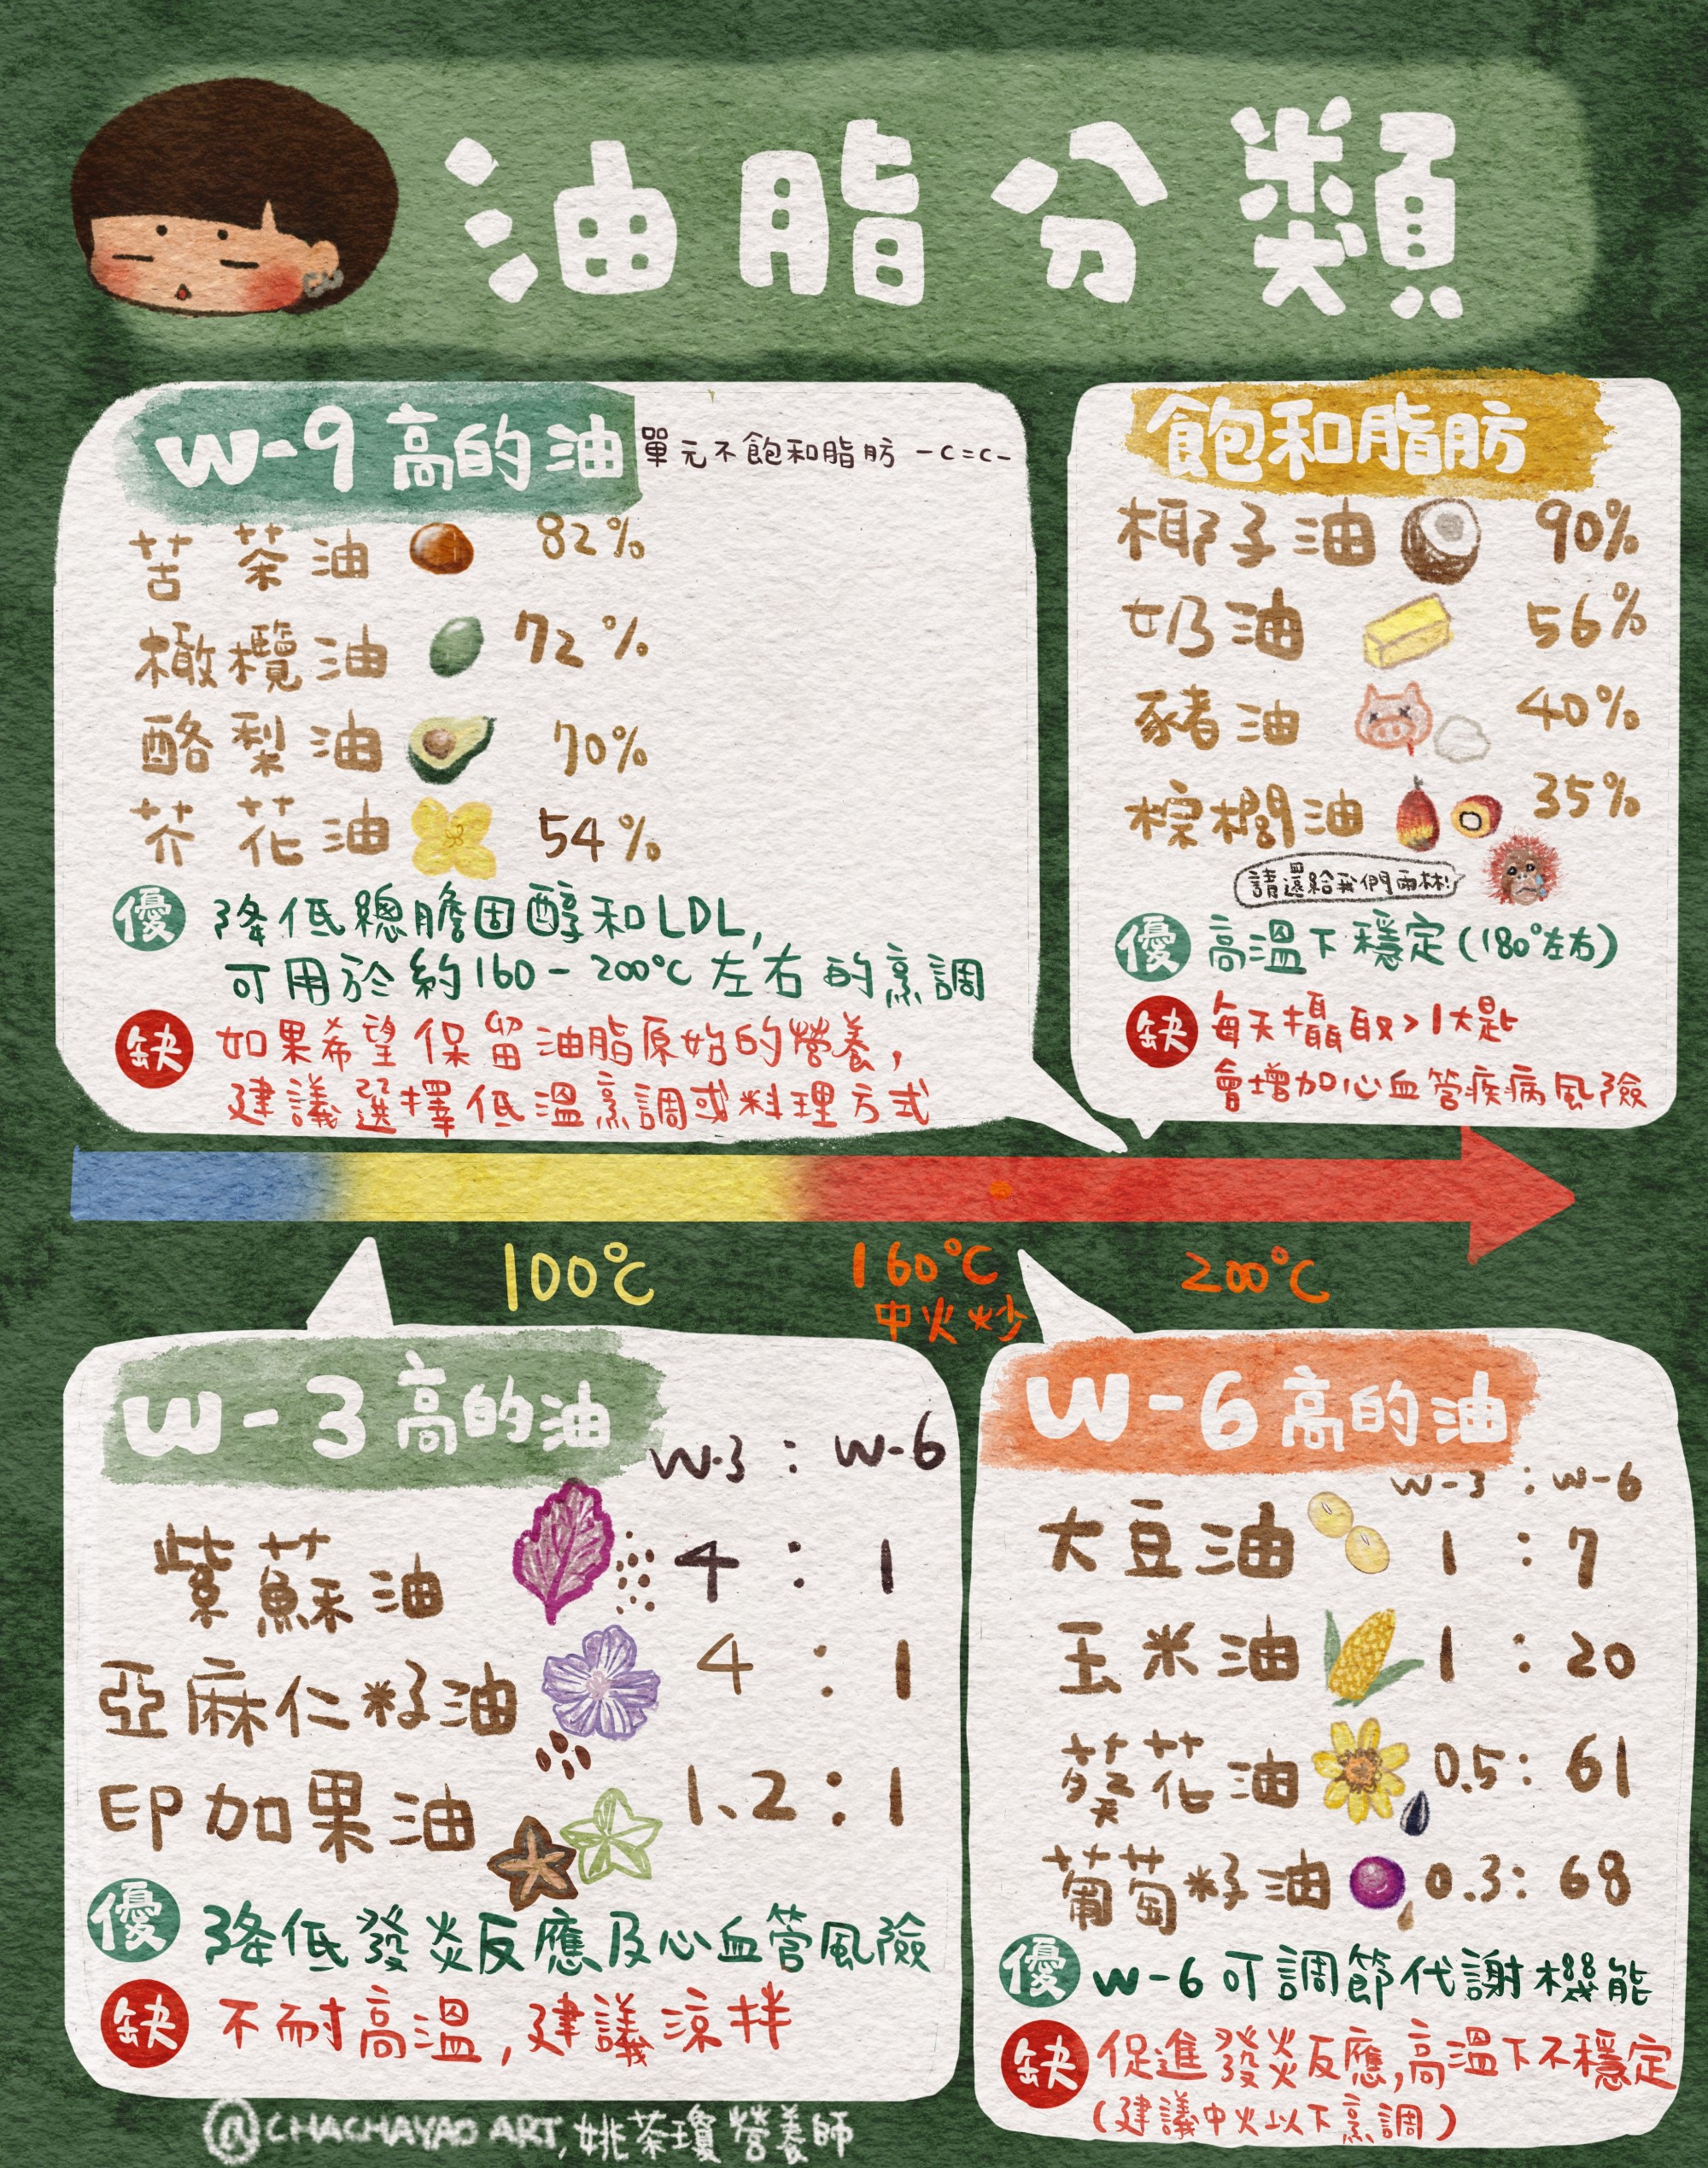 油脂分類
w-9高的油 單元不飽和脂肪 -c=c-
苦茶油 82%
橄欖油 72%
酪梨油 70%
芥花油 54%
優 降低總膽固醇和LDL,
可用於約160-200°C左右的烹調
缺 如果希望保留油脂原始的營養,
建議選擇低溫烹調或料理方式
飽和脂肪
椰子油 90%
奶油 56%
豬油 40%
棕櫚油 35%
請還給我們雨林!
優 高溫下穩定(180°左右)
缺 每天攝取>1大匙
會增加心血管疾病風險
100°C
160°C
中火炒
200°C
w-3高的油
w-3 : w-6
紫蘇油 4 : 1
亞麻仁籽油 4 : 1
印加果油 1.2 : 1
優 降低發炎反應及心血管風險
缺 不耐高溫,建議涼拌
w-6高的油
w-3 : w-6
大豆油 1 : 7
玉米油 1 : 20
葵花油 0.5 : 61
葡萄籽油 0.3 : 68
優 w-6可調節代謝機能
缺 促進發炎反應,高溫下不穩定
(建議中火以下烹調)
@CHACHAYAO ART,姚茶瓊營養師